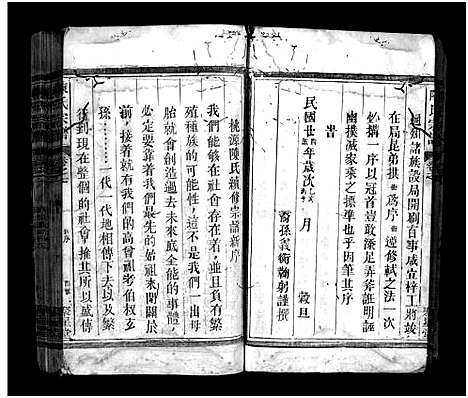 通知諸族設局開刷百事咸宜梓工將竣
在局是弟拱
為序
遵修軾之法一次
必搆一序以冠首豈敢漆足弄斧誰明誣
幽撲滅家乘之標準也乎因筆其序
旹
民國廿四年歲次乙亥 月 穀旦
裔孫義衛鞠躬謹撰
桃源陳氏續修宗譜新序
我們能够在社會存在着，並且負有繁
殖種族的可能性，這不是我們一出母
胎就創造過去未來底全能的事體，
必定要靠着我們最先的始祖來開關於
前，接着就有我們的高曾祖考伯叔玄
孫……一代一代地相傳下去以及繁
衍到現在整個的社會，推其所以感傳